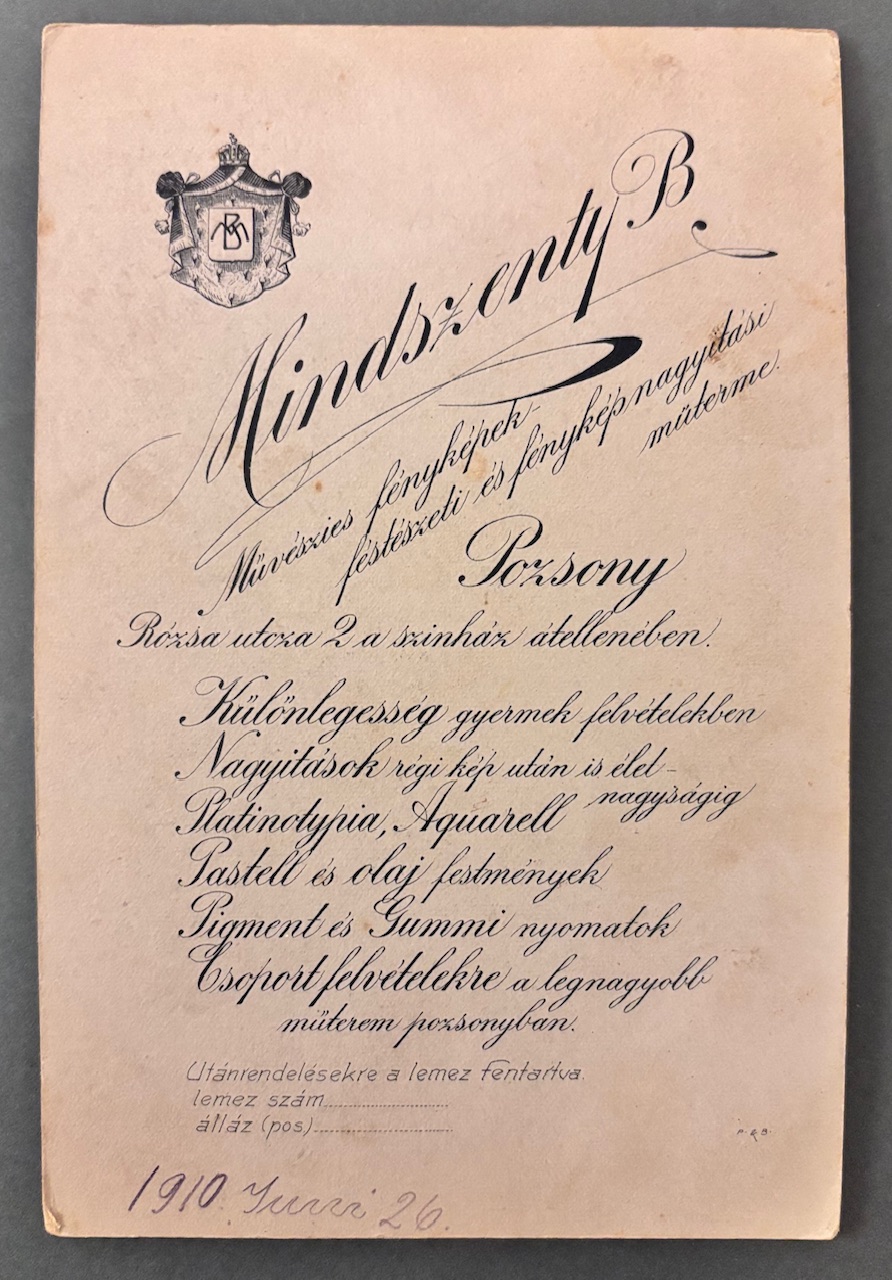 BM
Mindszenty B.
Művészies fényképek-
féstészeti és fénykép nagyitási
műterme.
Pozsony
Rózsa utcza 2 a szinház átellenében.
Különlegesség gyermek felvételekben
Nagyitások régi kép után is élet-
nagyságig
Platinotypia, Aquarell
Pastell és olaj festmények
Pigment és Gummi nyomatok
Csoport felvételekre a legnagyobb
műterem pozsonyban.
Utánrendelésekre a lemez fentartva.
lemez szám
álláz (pos)
P. & B.
1910 Juni 26.